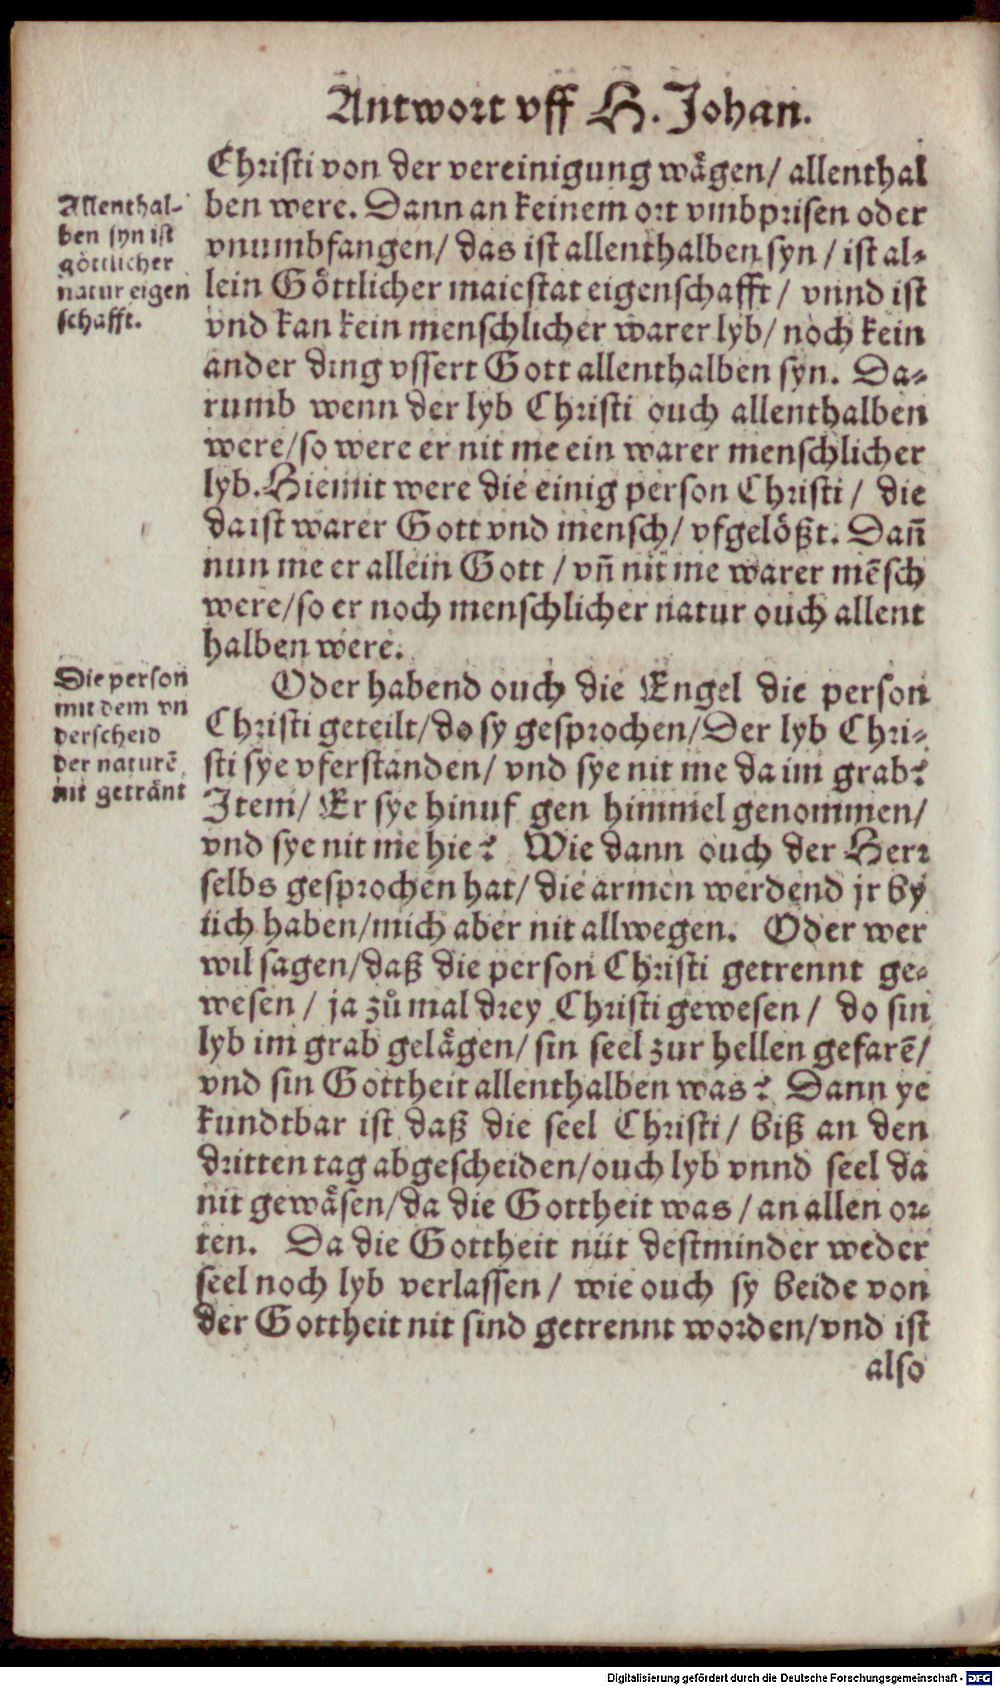 Antwort vff H. Johan.
Christi von der vereinigung wågen/ allenthal
ben were. Dann an keinem ort vmbprisen oder
vnumbfangen/ das ist allenthalben syn / ist al-
lein Göttlicher maiestat eigenschafft / vnnd ist
vnd kan kein menschlicher warer lyb/ noch kein
ander ding vssert Gott allenthalben syn. Da-
rumb wenn der lyb Christi ouch allenthalben
were/so were er nit me ein warer menschlicher
lyb. Hiemit were die einig person Christi / die
da ist warer Gott vnd mensch/ vfgelößt. Dañ
nun me er allein Gott / vñ nit me warer mẽsch
were/so er noch menschlicher natur ouch allent
halben were.
Oder habend ouch die Engel die person
Christi geteilt/do sy gesprochen/Der lyb Chri-
sti sye vferstanden/ vnd sye nit me da im grab?
Item/ Er sye hinuf gen himmel genommen/
vnd sye nit me hie? Wie dann ouch der Herr
selbs gesprochen hat/ die armen werdend jr by
üch haben/mich aber nit allwegen. Oder wer
wil sagen/daß die person Christi getrennt ge-
wesen / ja zů mal drey Christi gewesen / do sin
lyb im grab gelågen/ sin seel zur hellen gefarẽ/
vnd sin Gottheit allenthalben was? Dann ye
kundtbar ist daß die seel Christi/ biß an den
dritten tag abgescheiden/ouch lyb vnnd seel da
nit gewåsen/da die Gottheit was / an allen or-
ten. Da die Gottheit nüt destminder weder
seel noch lyb verlassen / wie ouch sy beide von
der Gottheit nit sind getrennt worden/vnd ist
also
Allenthal-
ben syn ist
göttlicher
natur eigen
schafft.
Die person
mit dem vn
derscheid
der naturẽ
nit getrånt
Digitalisierung gefördert durch die Deutsche Forschungsgemeinschaft - DFG